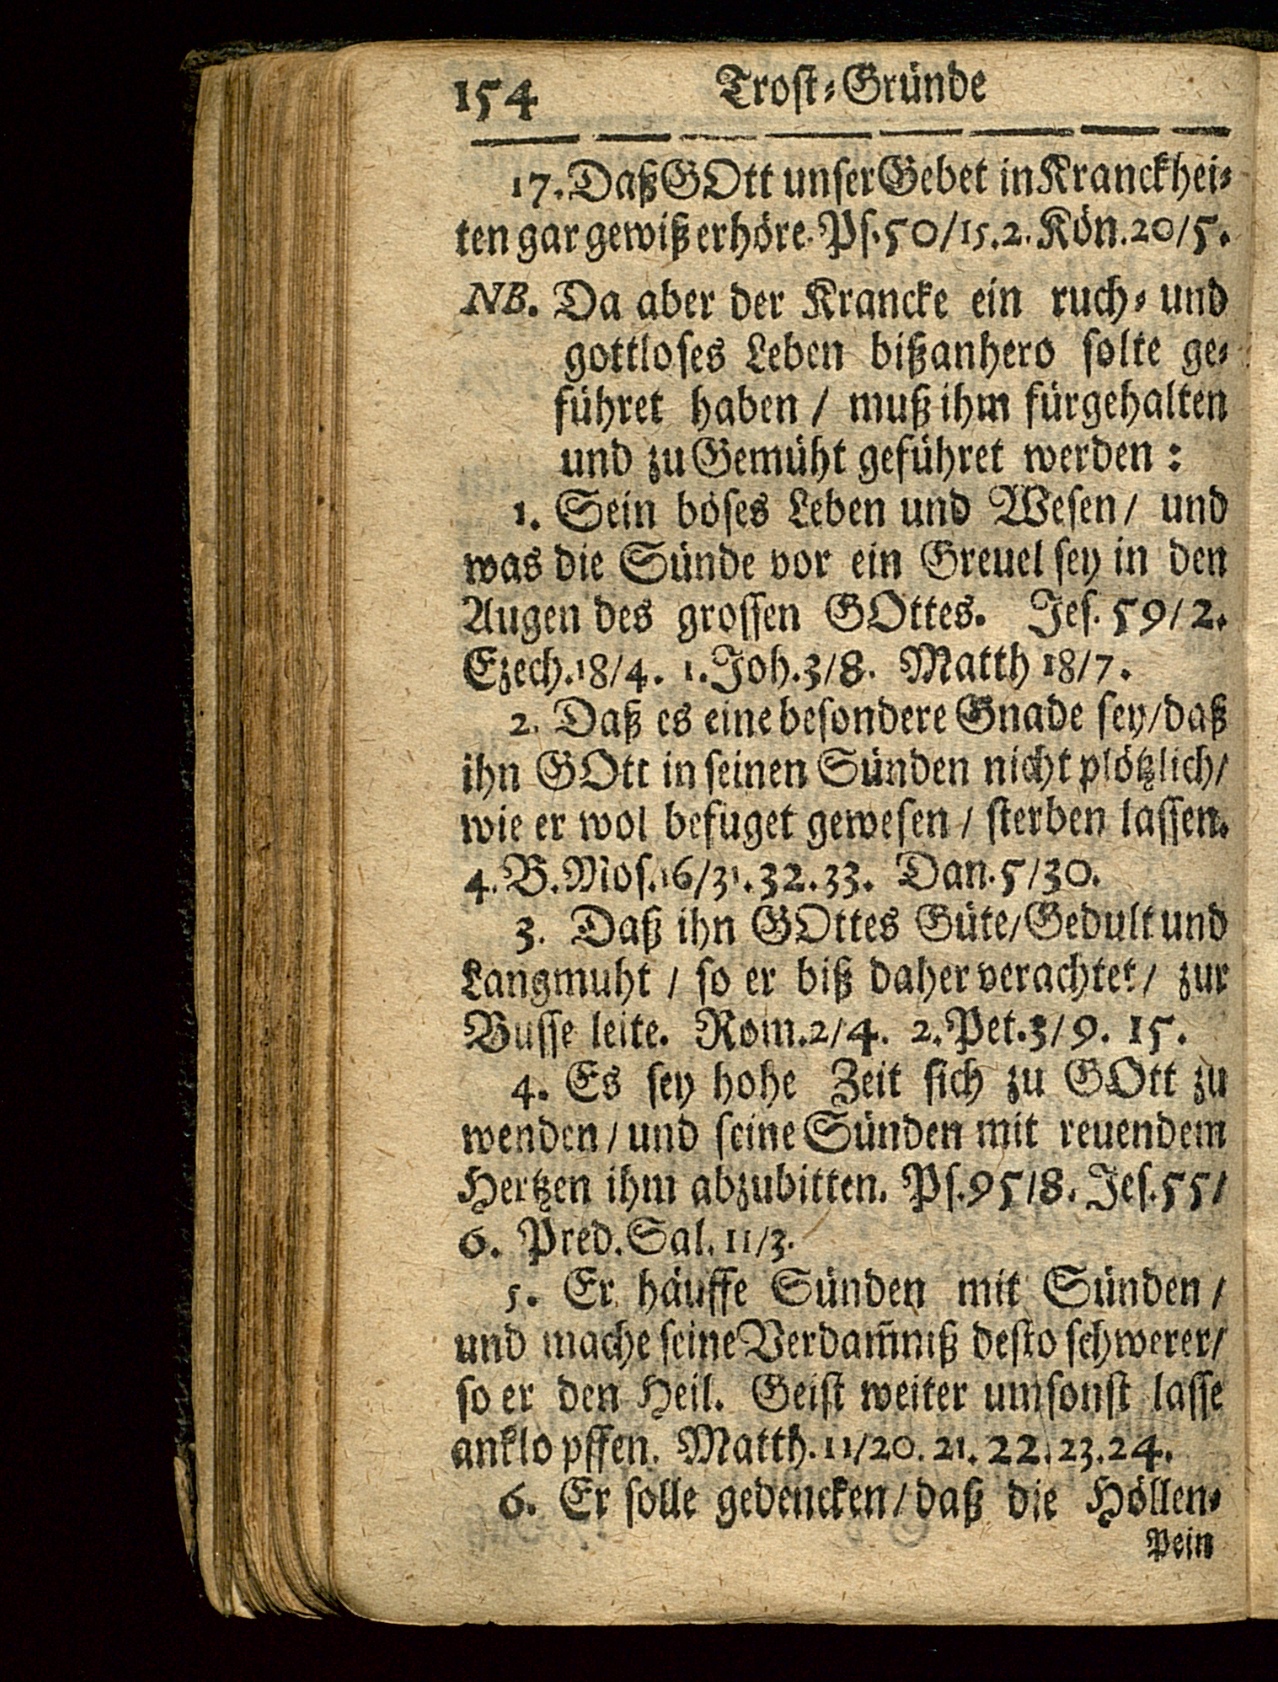 154 Trost-Gründe
17. Daß GOtt unser Gebet in Kranckhei-
ten gar gewiß erhöre. Ps. 50/15. 2. Kön. 20/5.
NB. Da aber der Krancke ein ruch- und
gottloses Leben bißanhero solte ge-
führet haben / muß ihm fürgehalten
und zu Gemüht geführet werden:
1. Sein böses Leben und Wesen / und
was die Sünde vor ein Greuel sey in den
Augen des grossen GOttes. Jes. 59/2.
Ezech. 18/4. 1. Joh. 3/8. Matth 18/7.
2. Daß es eine besondere Gnade sey / daß
ihn GOtt in seinen Sünden nicht plötzlich /
wie er wol befuget gewesen / sterben lassen.
4. B. Mos. 16/31. 32. 33. Dan. 5/30.
3. Daß ihn GOttes Güte / Gedult und
Langmuht / so er biß daher verachtet / zur
Busse leite. Rom. 2/4. 2. Pet. 3/9. 15.
4. Es sey hohe Zeit sich zu GOtt zu
wenden / und seine Sünden mit reuendem
Hertzen ihm abzubitten. Ps. 95/8. Jes. 55/
6. Pred. Sal. 11/3.
5. Er häuffe Sünden mit Sünden /
und mache seine Verdam̃niß desto schwerer /
so er den Heil. Geist weiter umsonst lasse
anklopffen. Matth. 11/20. 21. 22. 23. 24.
6. Er solle gedencken / daß die Höllen-
Pein